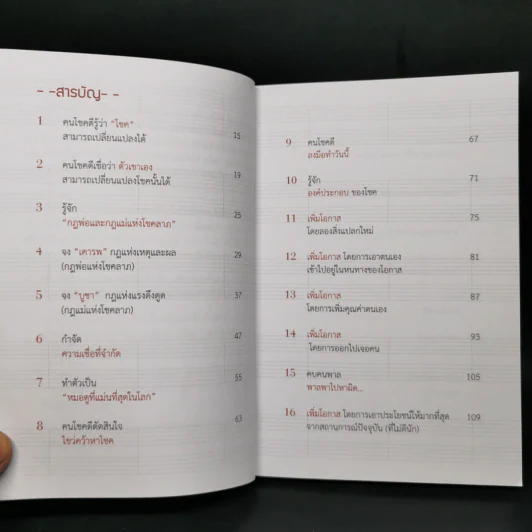 - -สารบัญ- -
1 คนโชคดีรู้ว่า "โชค"
สามารถเปลี่ยนแปลงได้ 15
2 คนโชคดีเชื่อว่า ตัวเขาเอง
สามารถเปลี่ยนแปลงโชคนั้นได้ 19
3 รู้จัก
"กฎพ่อและกฎแม่แห่งโชคลาภ" 25
4 จง "เคารพ" กฎแห่งเหตุและผล 29
(กฎพ่อแห่งโชคลาภ)
5 จง "บูชา" กฎแห่งแรงดึงดูด 37
(กฎแม่แห่งโชคลาภ)
6 กำจัด 47
ความเชื่อที่จำกัด
7 ทำตัวเป็น 55
"หมอดูที่แม่นที่สุดในโลก"
8 คนโชคดีตัดสินใจ 63
ไขว่คว้าหาโชค
9 คนโชคดี 67
ลงมือทำวันนี้
10 รู้จัก 71
องค์ประกอบ ของโชค
11 เพิ่มโอกาส 75
โดยลองสิ่งแปลกใหม่
12 เพิ่มโอกาส โดยการเอาตนเอง 81
เข้าไปอยู่ในหนทางของโอกาส
13 เพิ่มโอกาส 87
โดยการเพิ่มคุณค่าตนเอง
14 เพิ่มโอกาส 93
โดยการออกไปเจอคน
15 คบคนพาล 105
พาลพาไปหาผิด...
16 เพิ่มโอกาส โดยการเอาประโยชน์ให้มากที่สุด 109
จากสถานการณ์ปัจจุบัน (ที่ไม่ดีนัก)